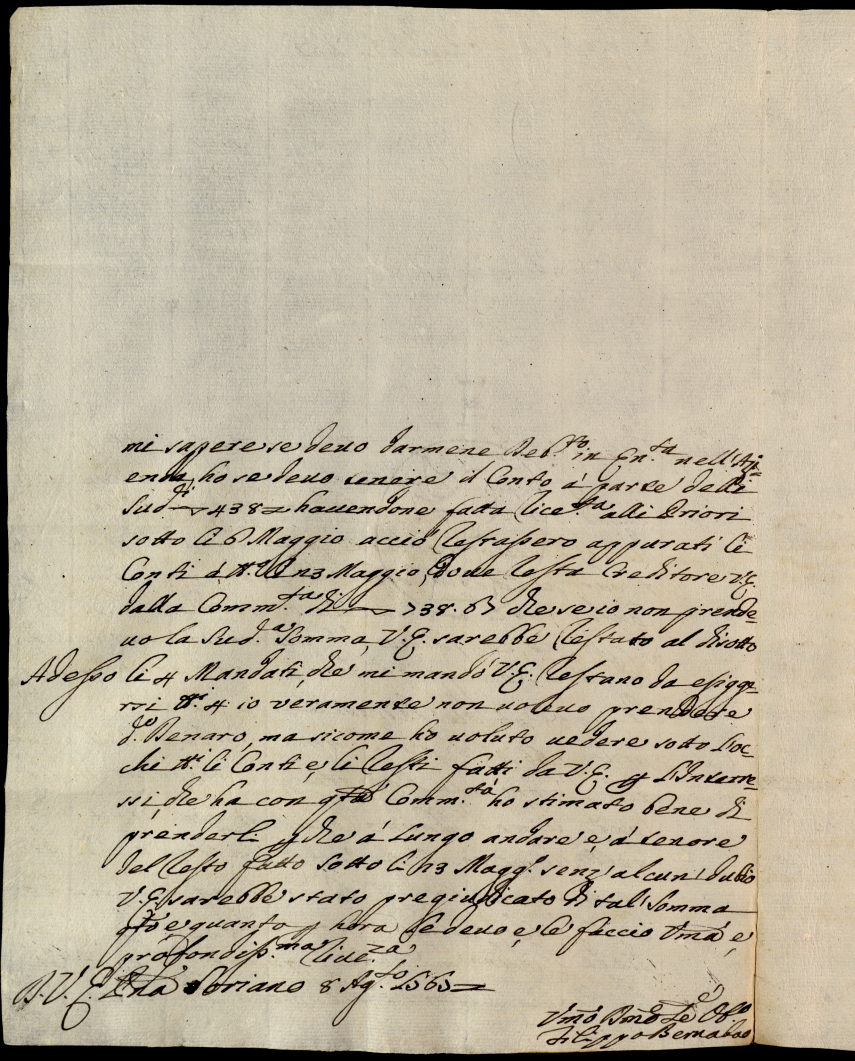 mi sapere se devo darmene Deb.to in En.ta nell'Azi=
enda, ho se devo tenere il Conto á parte delli
Sud.ti 438 havendone fatta Rice.ta alli Priori
sotto li 6 Maggio acciò restassero appurati li
Conti á li 13 Maggio, dove resta Creditore V.E.
dalla Comm.tà di 738.67 che se io non prende=
vo la Sud.a Somma, V.E. sarebbe restato al disotto
Adesso li 4 Mandati, che mi mandò V.E. restano da esigge
rsi 4 io veramente non volevo prendere
d.o Denaro, ma sicome ho voluto vedere sotto l'oc=
chi li Conti e, li resti fatti da V.E. p l'Interre=
ssi, che ha con qta Comm.tà ho stimato bene di
prenderli, p che á lungo andare e, á tenore
del resto fatto sotto li 13 Magg.o senz'alcun'dubio
V.E. sarebbe stato pregiudicato di tal'Somma
qto e quanto p hora le devo e, le faccio Uma e,
profondiss.ma Rive.za
D. V. E. Soriano 8 Ag.to
Umo Dmo Se.e Obl.o
Filippo Bernabao